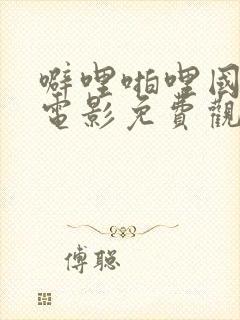 噼哩啪哩国
電影免費觀
傅聪